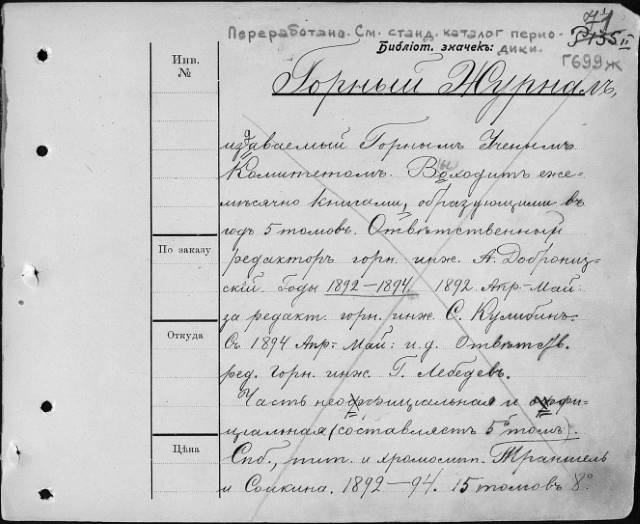 71
Переработано. См. станд. каталог перио-
Библіот. значекъ: дики.
P135 II
Г699ж
Инв.
№
Горный Журналъ,
издаваемый Горнымъ Ученымъ
Комитетомъ. Выходитъ еже-
мѣсячно книгами, образующими въ
годъ 5 томовъ. Отвѣтственный
По заказу
редакторъ горн. инж. А. Доброниз-
скій. Годы 1892–1894. 1892 Апр.-Май:
за редакт. горн. инж. С. Кулибинъ.
Откуда
Съ 1894 Апр.- Май: и. д. Отвѣтств.
ред. горн. инж. Г. Лебедевъ.
Часть неоффиціальная и оффи-
ціальная (составляетъ 5й томъ).
Цѣна
Спб., тип. и хромолит. Траншель
и Сомкина. 1892–94. 15 томовъ 8°